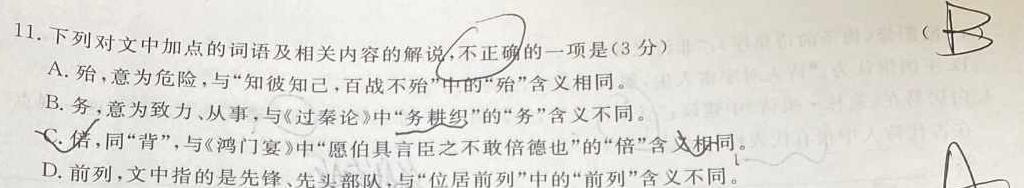 11. 下列对文中加点的词语及相关内容的解说,不正确的一项是(3分) ( B
A. 殆,意为危险,与“知彼知己,百战不殆”中的“殆”含义相同。
B. 务,意为致力、从事,与《过秦论》中“务耕织”的“务”含义不同。
C. 倍,同“背”,与《鸿门宴》中“愿伯具言臣之不敢倍德也”的“倍”含义相同。
D. 前列,文中指的是先锋、先头部队,与“位居前列”中的“前列”含义不同。